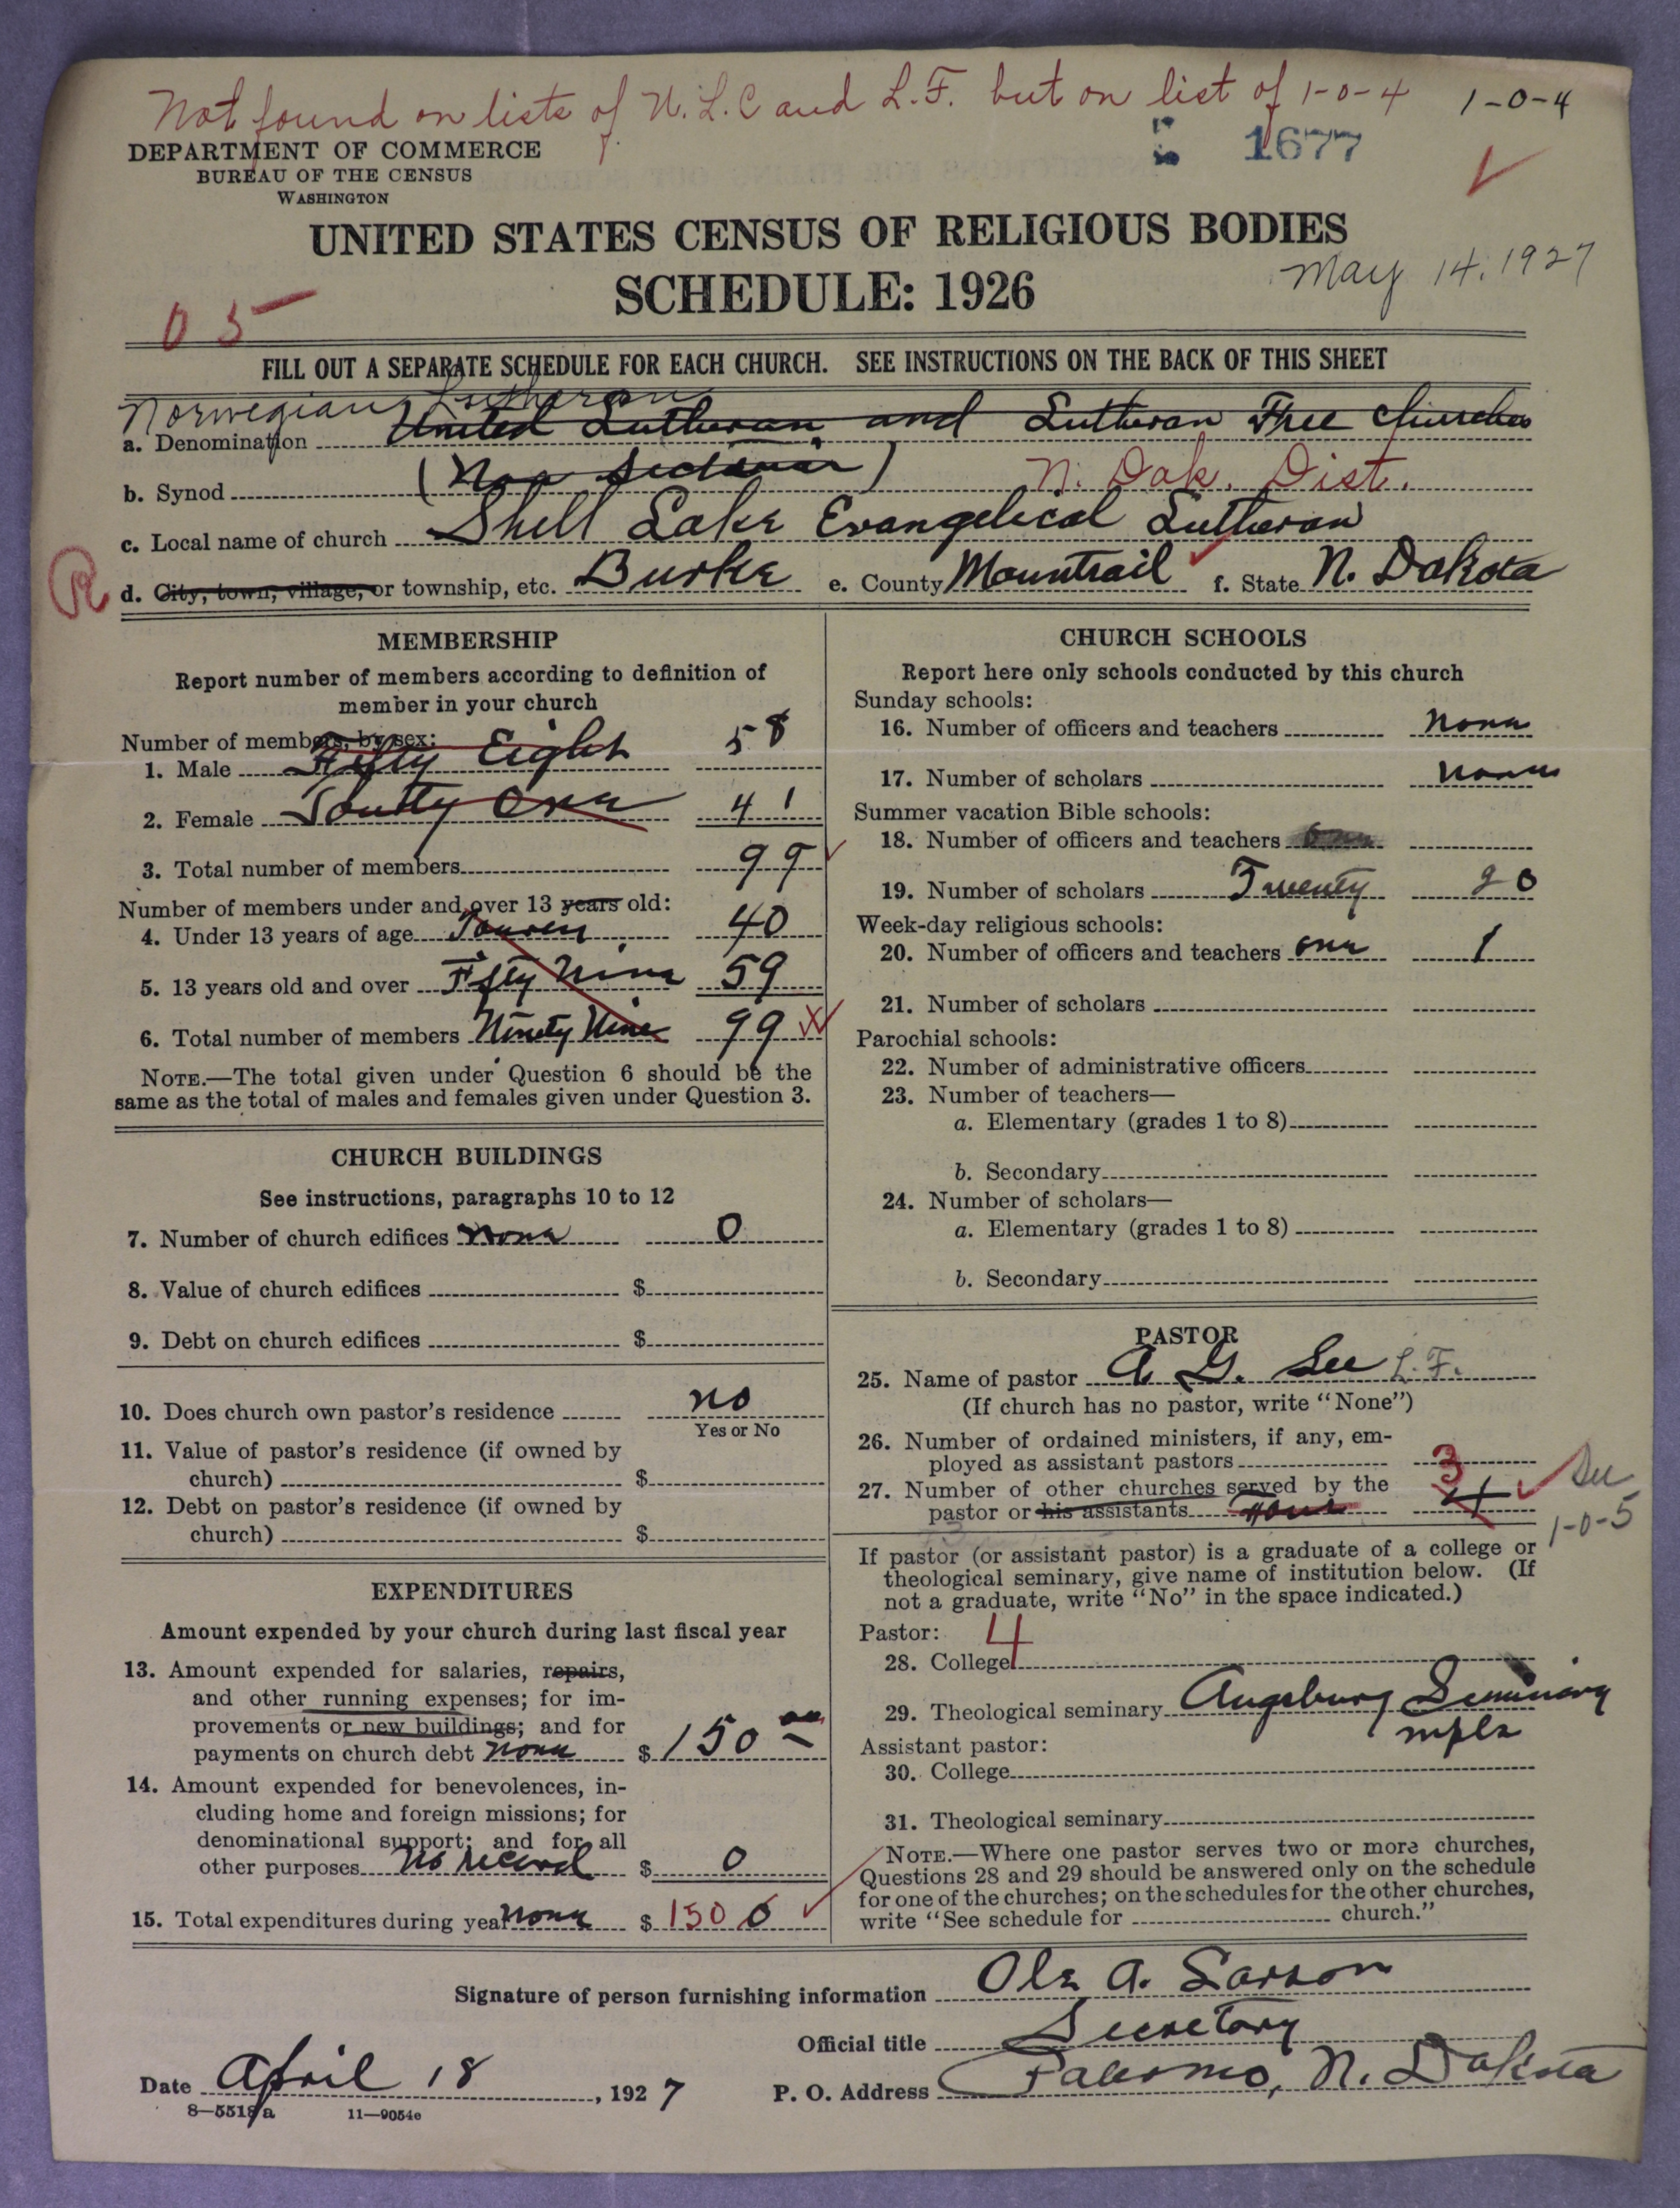 Not found on lists of N.L.C and L.F. but on list of 1-0-4 1-0-4
DEPARTMENT OF COMMERCE
BUREAU OF THE CENSUS
WASHINGTON
1677
UNITED STATES CENSUS OF RELIGIOUS BODIES
SCHEDULE: 1926
May 14, 1927
05
FILL OUT A SEPARATE SCHEDULE FOR EACH CHURCH. SEE INSTRUCTIONS ON THE BACK OF THIS SHEET
Norwegian Lutheran
a. Denomination United Lutheran and Lutheran Free Churches
b. Synod (Non Sectarian) N. Dak. Dist.
c. Local name of church Shell Lake Evangelical Lutheran
R
d. City, town, village, or township, etc. Burke e. County Mountrail f. State N. Dakota
MEMBERSHIP
Report number of members according to definition of
member in your church
Number of members, by sex:
1. Male Fifty Eight 58
2. Female Fourty One 41
3. Total number of members 99
Number of members under and over 13 years old:
4. Under 13 years of age 40
5. 13 years old and over Fifty Nine 59
6. Total number of members Ninety Nine 99
NOTE.—The total given under Question 6 should be the
same as the total of males and females given under Question 3.
CHURCH BUILDINGS
See instructions, paragraphs 10 to 12
7. Number of church edifices None 0
8. Value of church edifices $
9. Debt on church edifices $
10. Does church own pastor's residence no
Yes or No
11. Value of pastor's residence (if owned by
church) $
12. Debt on pastor's residence (if owned by
church) $
EXPENDITURES
Amount expended by your church during last fiscal year
13. Amount expended for salaries, repairs,
and other running expenses; for im-
provements or new buildings; and for
payments on church debt none $ 150 00
14. Amount expended for benevolences, in-
cluding home and foreign missions; for
denominational support; and for all
other purposes No record $ 0
15. Total expenditures during year none $ 150
CHURCH SCHOOLS
Report here only schools conducted by this church
Sunday schools:
16. Number of officers and teachers none
17. Number of scholars none
Summer vacation Bible schools:
18. Number of officers and teachers
19. Number of scholars Twenty 20
Week-day religious schools:
20. Number of officers and teachers one 1
21. Number of scholars
Parochial schools:
22. Number of administrative officers
23. Number of teachers—
a. Elementary (grades 1 to 8)
b. Secondary
24. Number of scholars—
a. Elementary (grades 1 to 8)
b. Secondary
PASTOR
25. Name of pastor A. G. Lee L.F.
(If church has no pastor, write "None")
26. Number of ordained ministers, if any, em-
ployed as assistant pastors
27. Number of other churches served by the 3
pastor or his assistants none 4
See
1-0-5
If pastor (or assistant pastor) is a graduate of a college or
theological seminary, give name of institution below. (If
not a graduate, write "No" in the space indicated.)
Pastor: 4
28. College
29. Theological seminary Augsburg Seminary
mpls
Assistant pastor:
30. College
31. Theological seminary
NOTE.—Where one pastor serves two or more churches,
Questions 28 and 29 should be answered only on the schedule
for one of the churches; on the schedules for the other churches,
write "See schedule for church."
Signature of person furnishing information Ole A. Larson
Official title Secretary
Date April 18, 1927 P. O. Address Palermo, N. Dakota
8—5518a 11—9054e